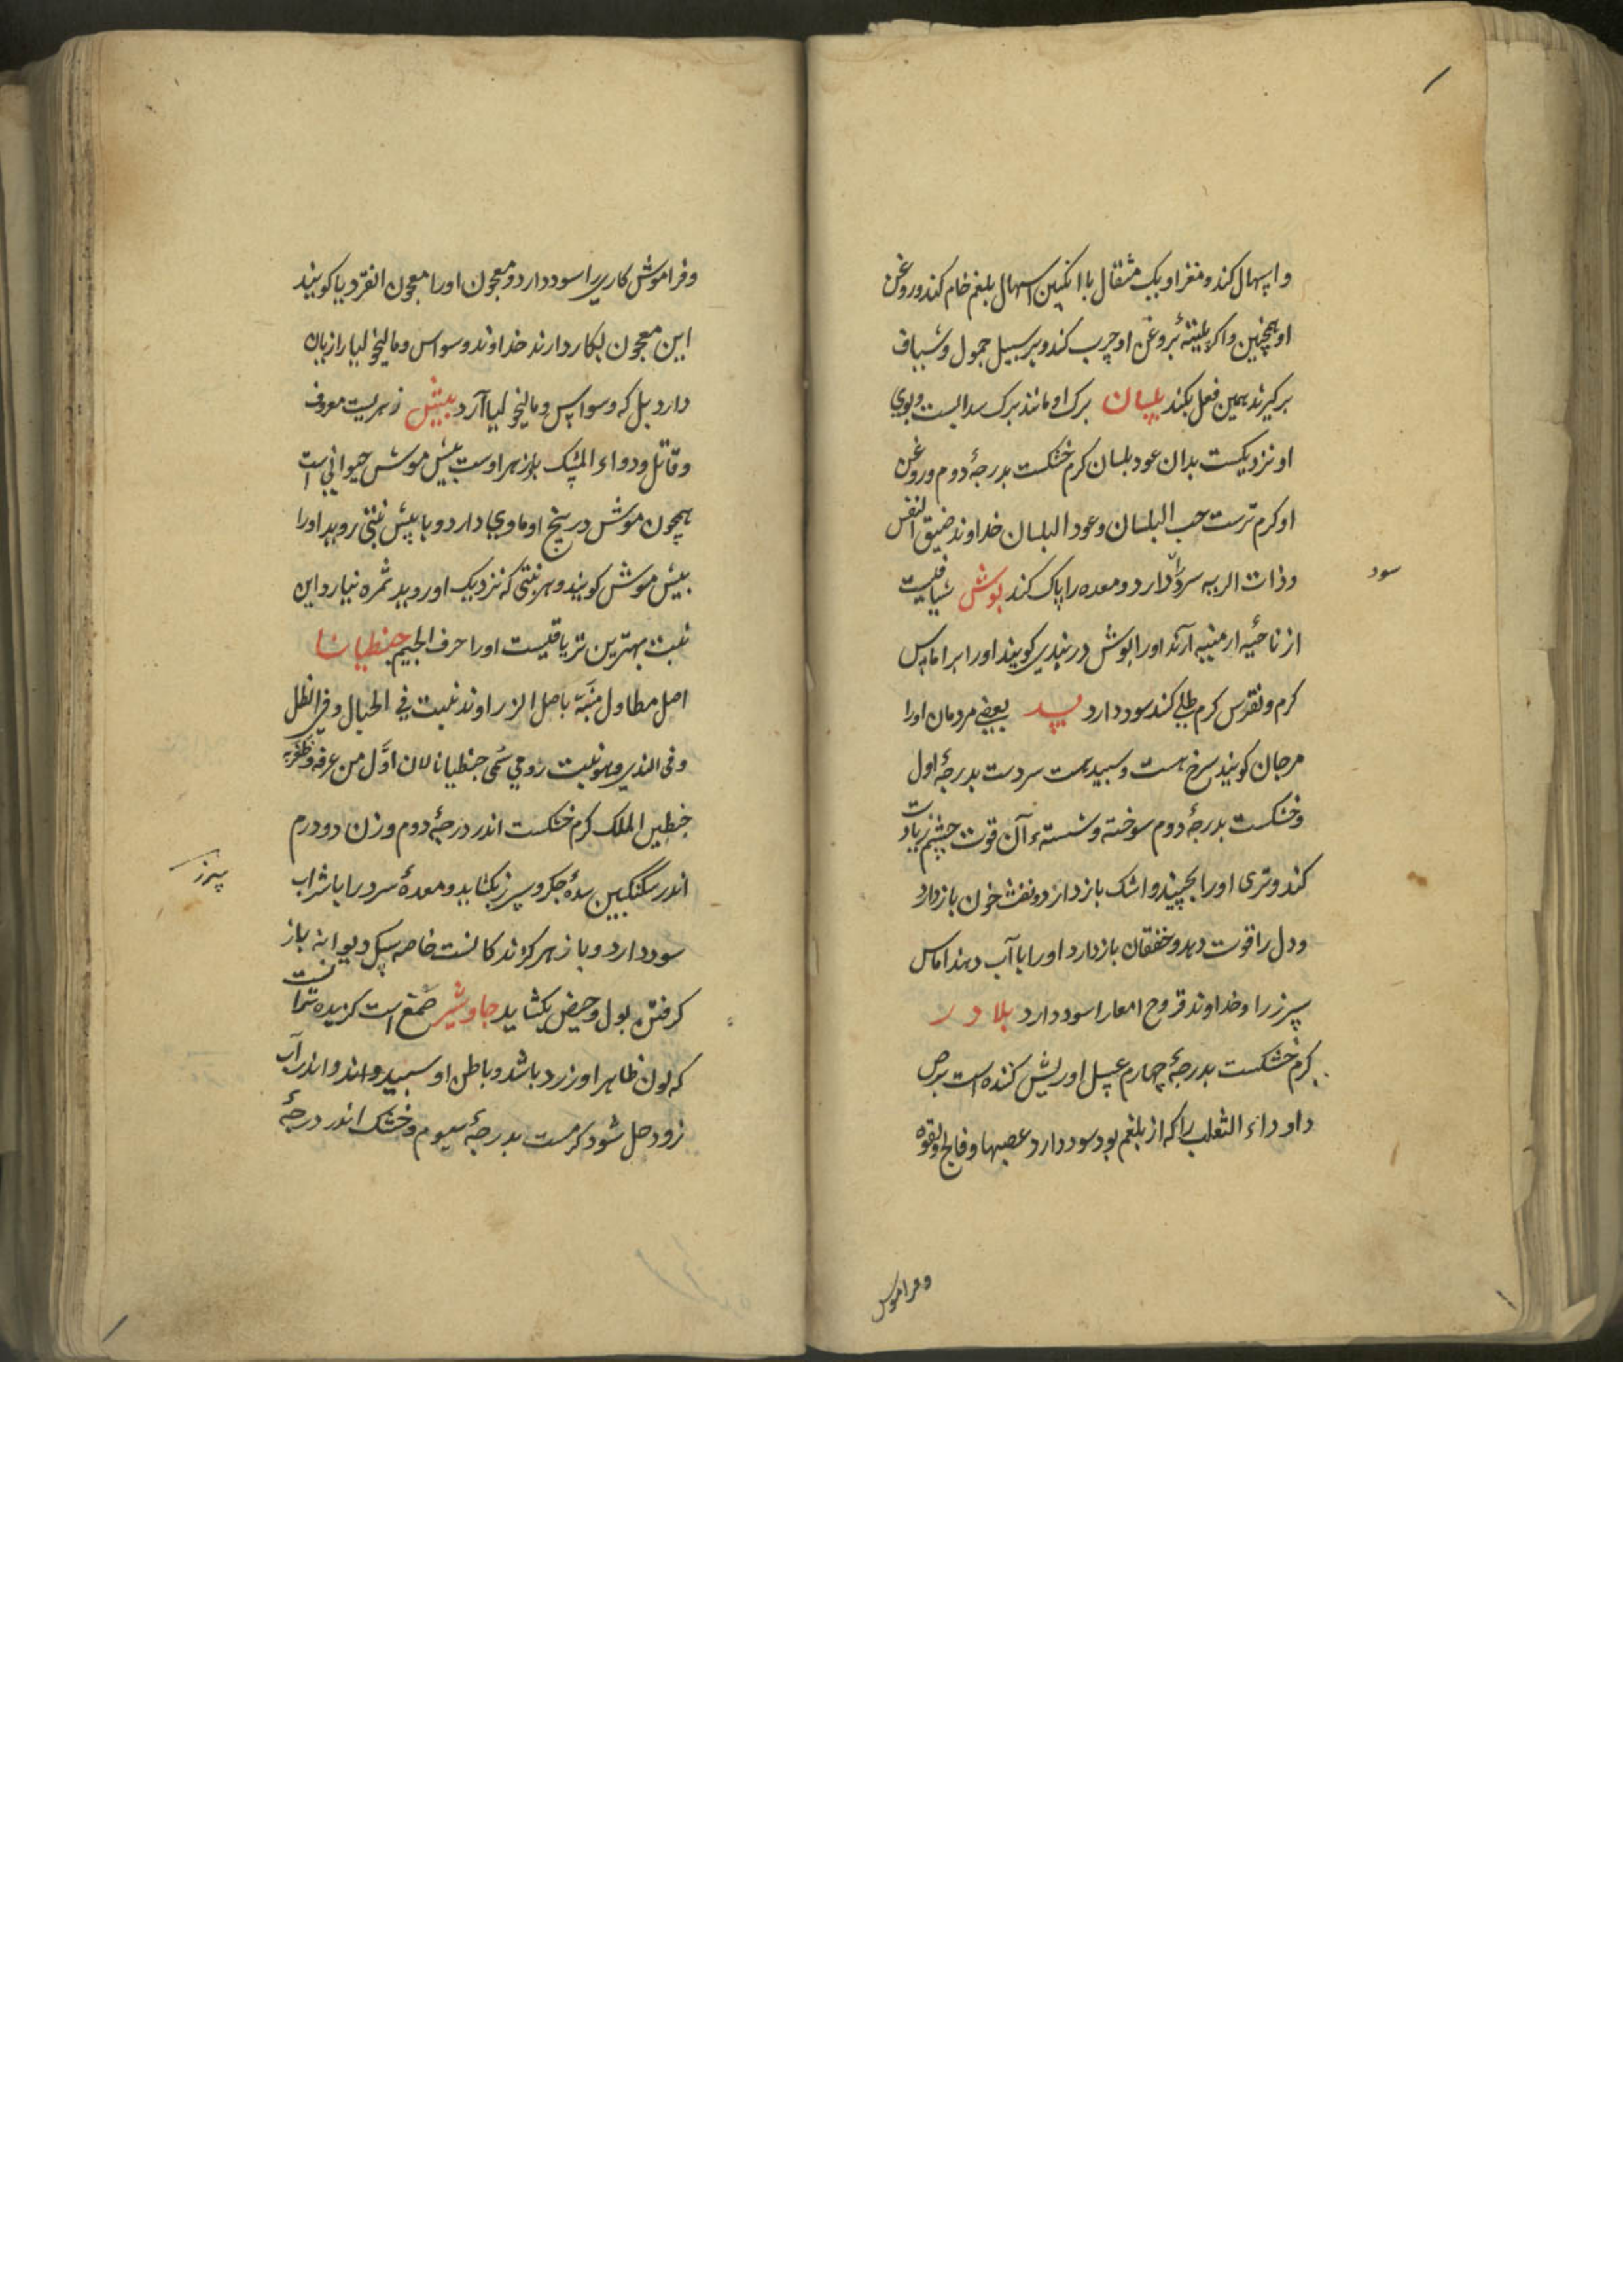 واسهال کند و مغز او یک مثقال با انکبین اسهال بلغم خام کند و روغن
او همچنین واکر پلیتهٔ بروغن او چرب کند و بر سبیل حمول و شیاف
برکیرند همین فعل بکند بلسان برک او مانند برک سدابست و بوی
او نزدیکست بدان عود بلسان کرم خشکست بدرجهٔ دوم و روغن
او کرم ترست حب البلسان و عود البلسان خداوند ضیق النفس
وذات الریه سرد را دارد و معده را پاک کند بوش شیافیست
سود
از ناحیه ارمنیه آرند او را بوش دربندی کویند او را بر اماس
کرم و نقرس کرم طلی کند سود دارد بسد بعضی مردمان او را
مرجان کویند سرخ هست و سپید هست سردست بدرجهٔ اول
وخشکست بدرجهٔ دوم سوخته و شسته آن قوت چشم زیادت
کند و تری او را بچیند و اشک باز دارد و نفث خون باز دارد
ودل را قوت دهد و خفقان باز دارد او را با آب دهند اماس
سپرز را و خداوند قروح امعا را سود دارد بلادر
کرم خشکست بدرجهٔ چهارم عسل او ریش کننده است برص
داو داء الثعلب را که از بلغم بود سود دارد عصبها و فالج و لقوه
وفراموش
وفراموش کاری را سود دارد و معجون او را معجون انقردیا کویند
این معجون بکار دارند خداوند وسواس و مالیخولیا را زیان
دارد بل که وسواس و مالیخولیا آرد بیش زهریست معروف
وقاتل و دواء المشک پازهر اوست بیش موش حیوانی است
همچون موش در بیخ او ماوی دارد و با بیش نبتی روید او را
بیش موش کویند و هر نبتی که نزدیک او روید ثمره نیارد این
نبت بهترین تریاقیست او را حرف الجیم جنطیانا
اصل مطاول منبته باصل الزراوند نبت فی الجبال و فی الظل
وفی الندی و هو نبت رومی سمی جنطیانا لان اول من عرفه
جنطین الملک کرم خشکست اندر درجهٔ دوم وزن دو درم
اندر سکنکبین سدهٔ جکر و سپرز بکشاید و معدهٔ سرد را با شراب
سپرز
سود دارد و با زهر کزندکانست خاصه سک دیوانه باز
کرفتن بول و حیض بکشاید جاوشیر صمغ است کزیده تر آنست
که لون ظاهر او زرد باشد و باطن او سپید و اندر آب
زود حل شود کرمست بدرجهٔ سیوم و خشک اندر درجهٔ